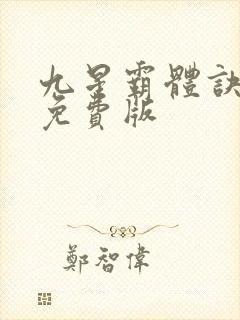 九星霸體訣
免費版
鄭智偉